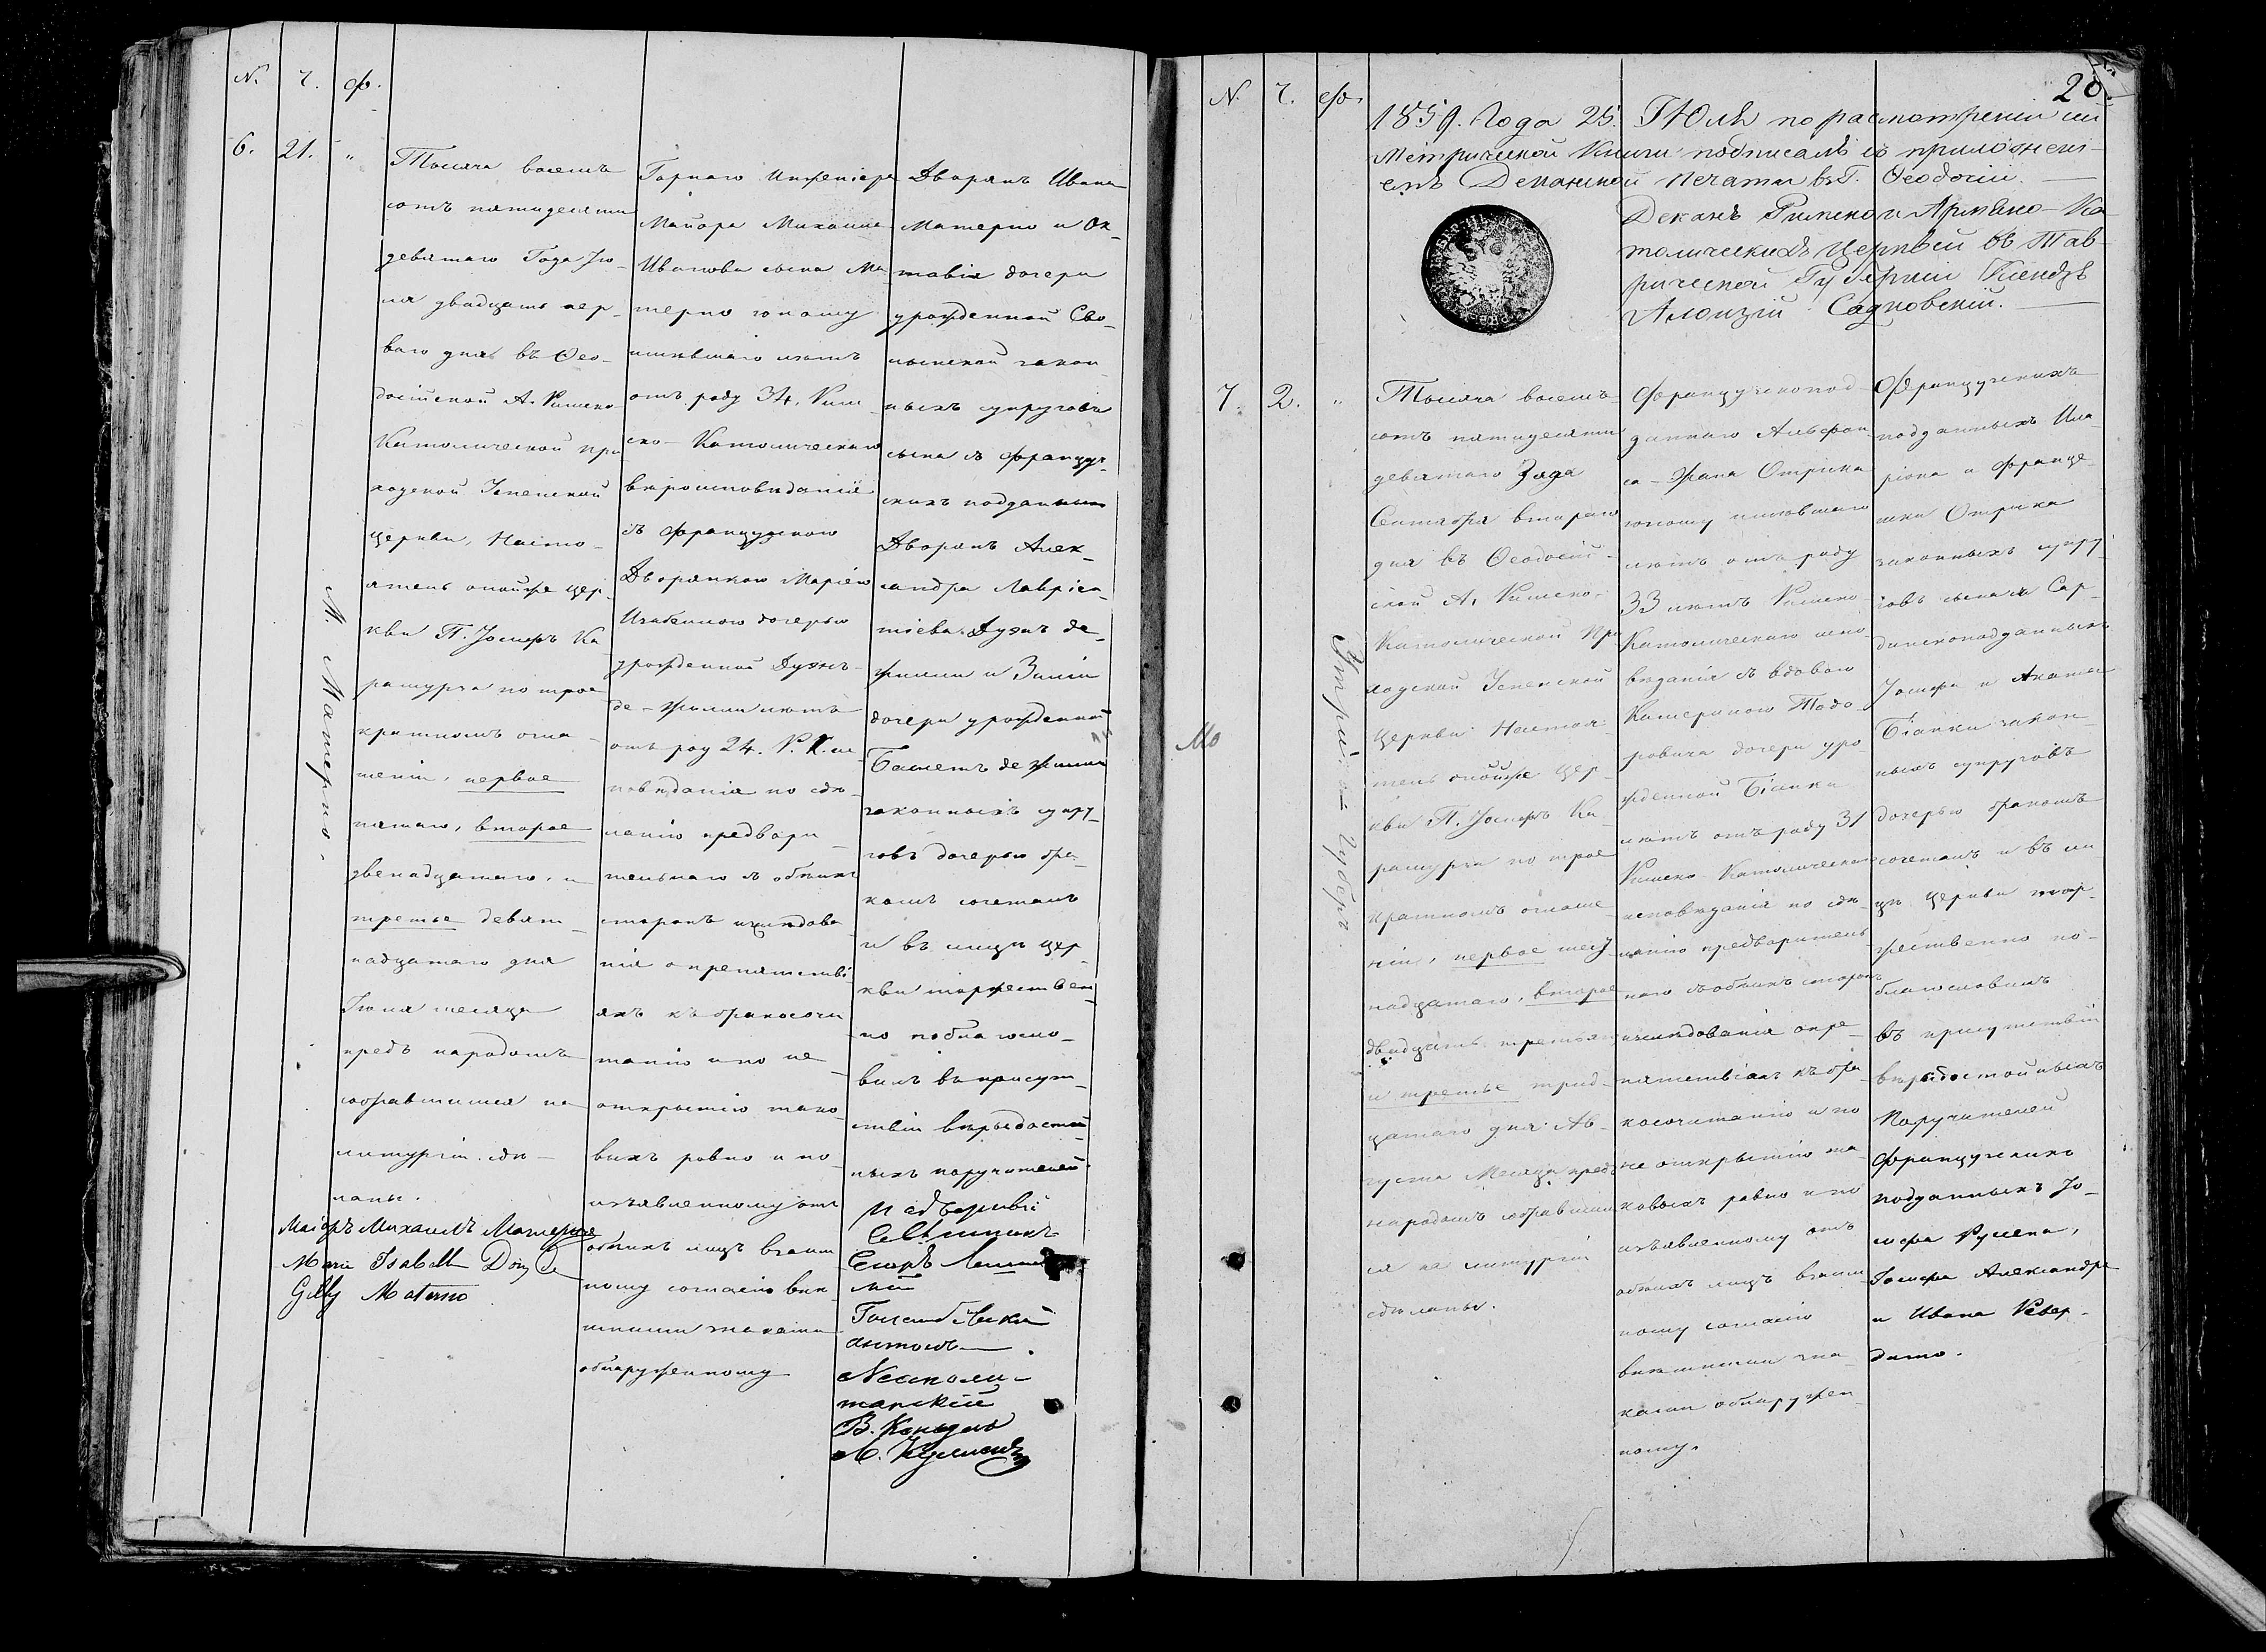 N. Ч. Ф.
6. 21. "
М. Матерно.
Тысяча восемь
сотъ пятидесяти
девятаго Года Iю-
ня двадцать пер-
ваго дня въ Ѳео-
досійской А. Римско
Католической При
ходской Успенской
церкви, Насто-
ятель онойже Цер-
кви П. Iосифъ Ка
рашурга по трое
кратномъ огла-
шеніи, первое
пятаго, второе
двенадцатаго, и
третье девят-
надцатаго дня
Iюня месяца
предъ народомъ
собравшимся на
литургіи сдѣ-
ланы.
Маіоръ Михаилъ Матерно
Marie Isabelle Douz De
Gilly Materno
Горнаго Инженера
Маіора Михаила
Иванова сына Ма
терно юношу
имѣвшаго лѣтъ
отъ роду 34. Рим
ско-Католическаго
вѣроисповѣданія
съ французскою
Дворянкою Маріею
Изабеллою дочерью
урожденной Дузъ-
де-Жилли лѣтъ
отъ роду 24. Р. К. ис
повѣданія по сдѣ-
ланію предвари-
тельнаго съ обѣихъ
сторонъ изслѣдова
нія о препятстві-
яхъ къ бракосоче
танію и по не-
открытію тако-
выхъ равно и по
изъявленному отъ
обѣихъ лицъ взаим
ному согласію внѣ
шними знаками
обнаруженному
Дворянъ Ивана
Матерно и Ок-
тавіи дочери
урожденной Сво-
линской закон
ныхъ супруговъ
сына съ француз-
скихъ подданныхъ
Дворянъ Алек-
сандра Лавріен-
тіева Дузъ де-
Жилли и Зиліи
дочери урожденной
Баметъ де Жилли
законныхъ супру-
говъ дочерью бра-
комъ сочеталъ
и въ лицѣ Цер-
кви торжествен-
но поблагосло-
вилъ въ присут-
ствіи вѣрыдостой-
ныхъ поручителей
Надворный
Совѣтникъ
Егоръ
Антонъ
Неаполи-
танскій
В. Консулъ
N. Ч. Ф.
20.
1859. Года 25. Iюля по расмотреніи сей
Метрической Книги подписалъ съ приложені-
емъ Деканской Печати въ Г. Ѳеодосіи.
Деканъ Римско и Армяно-Ка
толическихъ Церквей въ Тав-
рической Губерніи Ксендзъ
Алоизій Садковскій.
7. 2. "
Мо
Тысяча восемь
сотъ пятидесяти
девятаго Года
Сентября втораго
дня въ Ѳеодосій-
ской А. Римско-
Католической При
ходской Успенской
Церкви Настоя
тель онойже Цер-
кви П. Iосифъ Ка-
рашурга по трое
кратномъ оглаше
ніи, первое шест
надцатаго, второе
двадцать третья
и третье трид-
цатаго дня Ав-
густа Месяца предъ
народомъ собравшим
ся на литургіи
сдѣланы.
Французскопод-
даннаго Альфон
са-Жана Отрика
юношу имѣвшаго
лѣтъ отъ роду
33 лѣтъ Римско
Католическаго испо
вѣданія съ вдовою
Катериною Тодо-
ровича дочери уро
жденной Біанки
лѣтъ отъ роду 31
Римско-Католическаго
исповѣданія по сдѣ-
ланію предваритель
наго съ обѣихъ сторонъ
изслѣдованія о пре-
пятствіяхъ къ бра
косочетанію и по
не открытію та-
ковыхъ равно и по
изъявленному отъ
обѣихъ лицъ взаим
ному согласію
внѣшними зна-
ками обнаружен
ному.
Французскихъ
подданныхъ Ила
ріона и Франце-
шки Отрика
законныхъ супру
говъ сына съ Сар-
динскоподданныхъ
Iосифа и Агаты
Біанки закон-
ныхъ супруговъ
дочерью бракомъ
сочеталъ и въ ли
цѣ Церкви тор-
жественно по-
благословилъ
въ присутствіи
вѣрыдостойныхъ
Поручителей
Французскихъ
подданныхъ Iо-
сифа Русена,
Iосифа Александра
и Ивана Ревер-
дато.